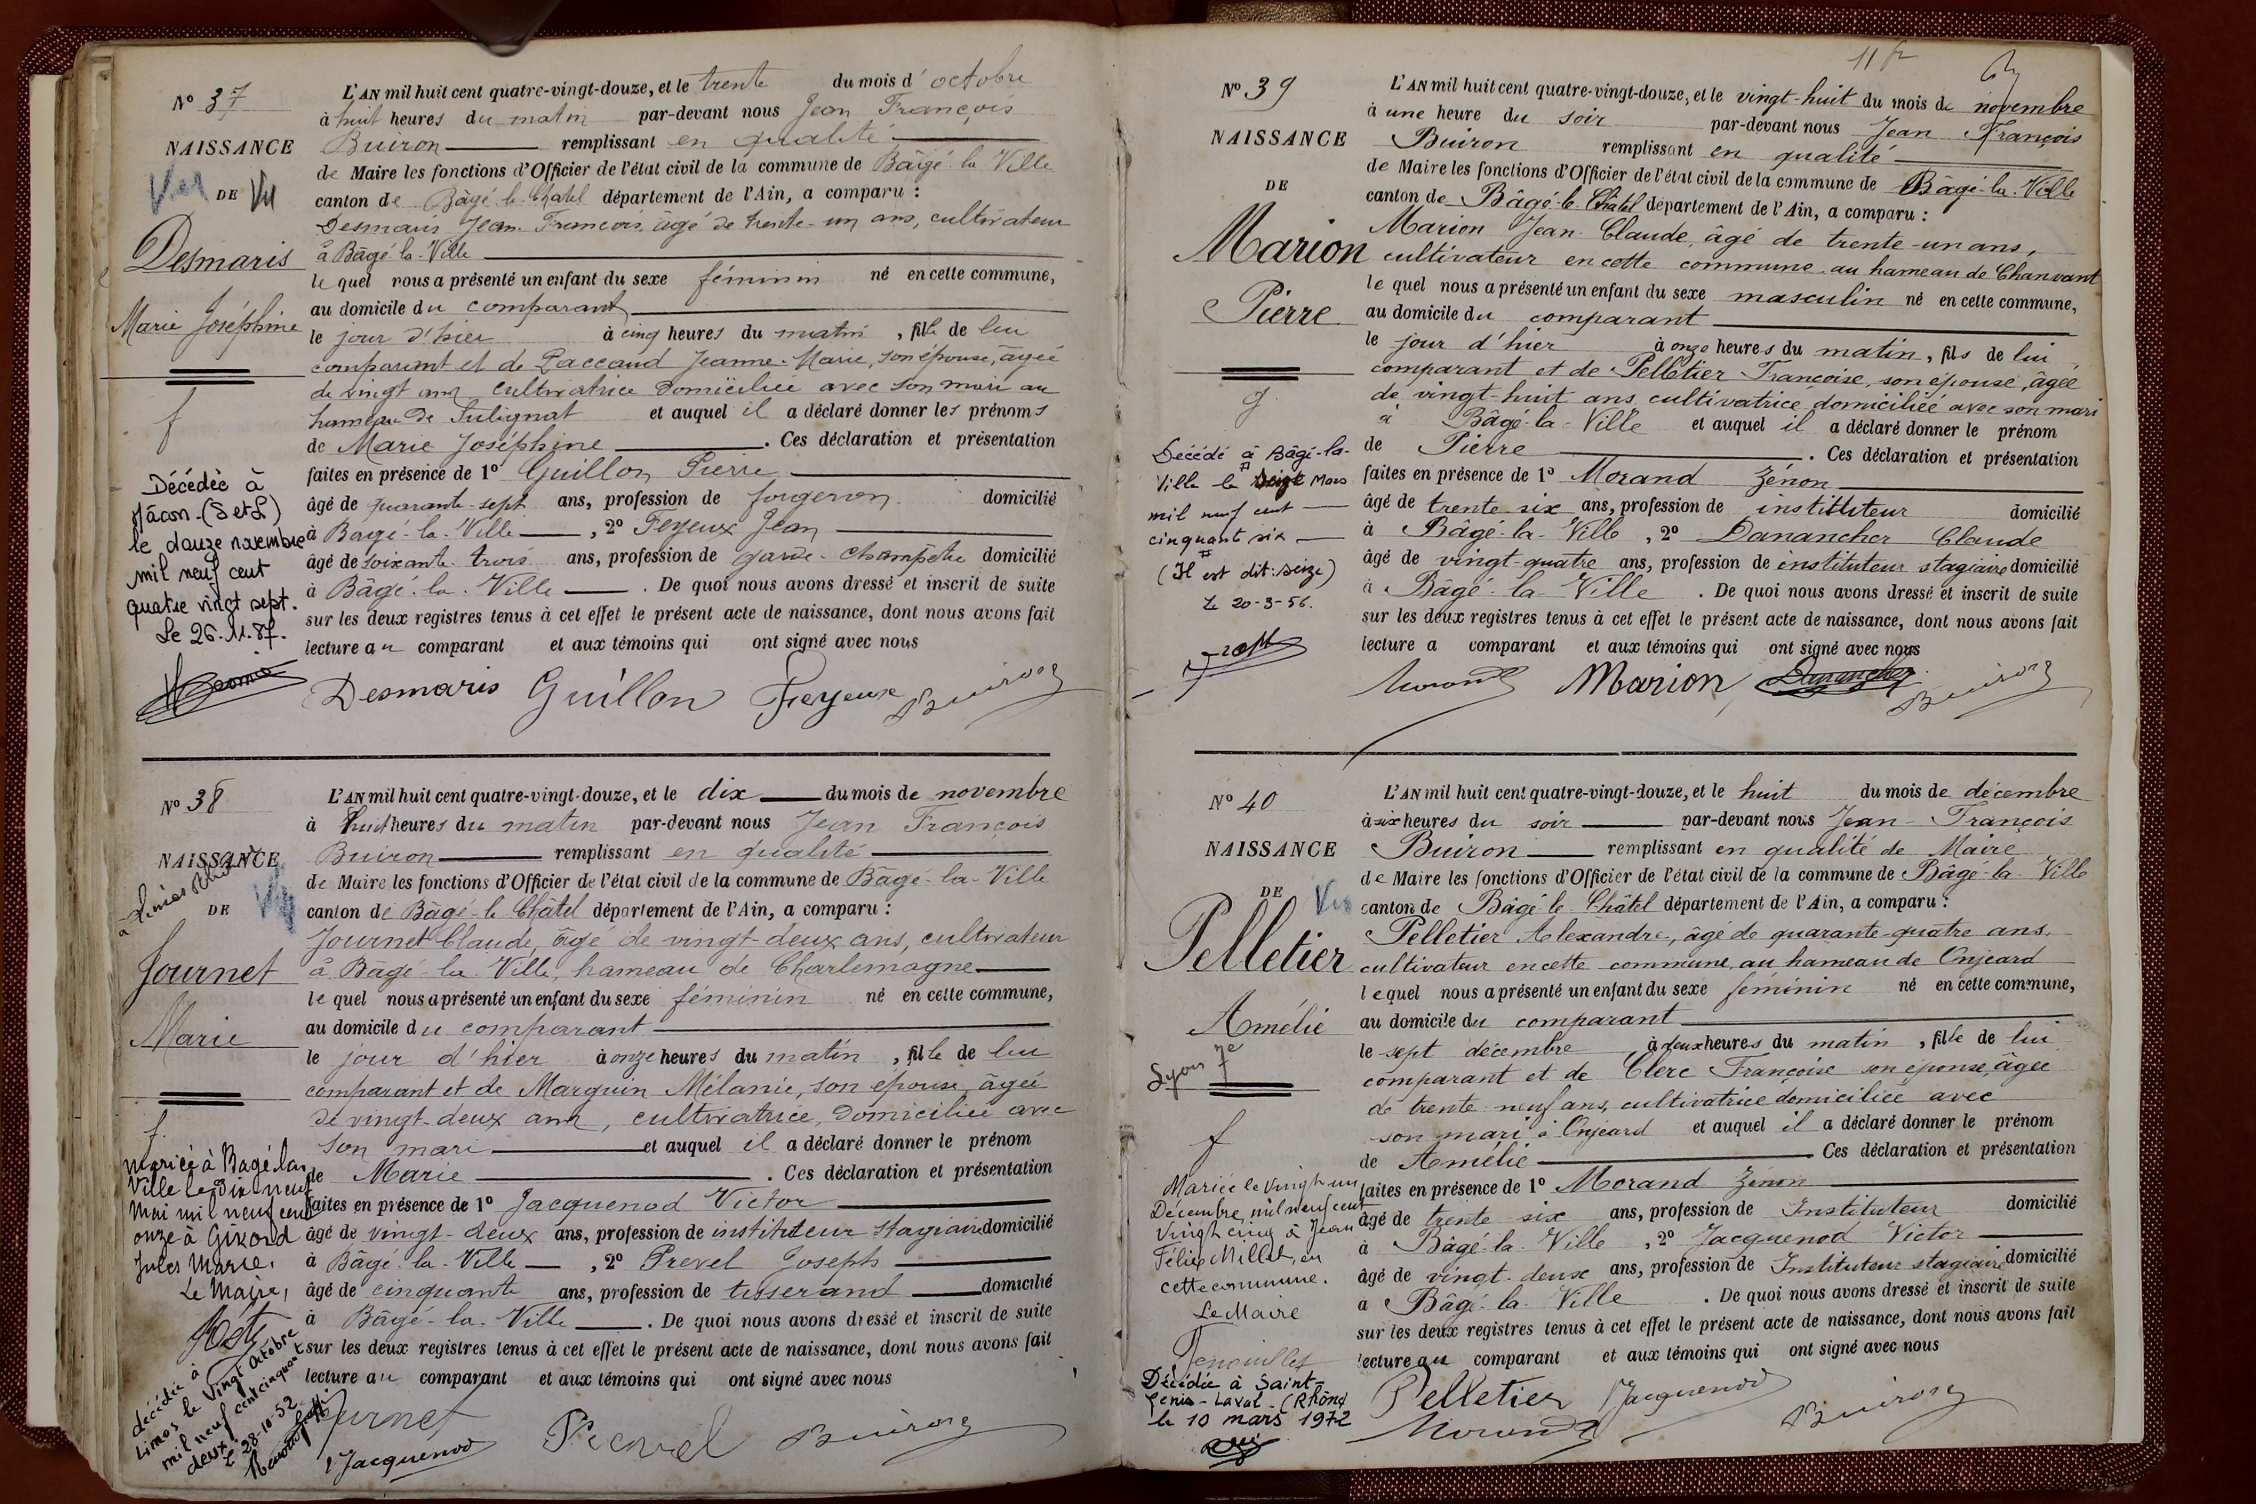 Nº 37
NAISSANCE
DE
Desmaris
Marie Joséphine
f
Décédée à
Mâcon (S et L)
le douze novembre
mil neuf cent
quatre vingt sept.
Le 26.11.87.
L'AN mil huit cent quatre-vingt-douze, et le trente du mois d'octobre
à huit heures du matin par-devant nous Jean François
Buiron remplissant en qualité
de Maire les fonctions d'Officier de l'état civil de la commune de Bâgé-la-Ville
canton de Bâgé-le-Châtel département de l'Ain, a comparu :
Desmaris Jean-François, âgé de trente-un ans, cultivateur
à Bâgé-la-Ville
lequel nous a présenté un enfant du sexe féminin né en cette commune,
au domicile du comparant
le jour d'hier à cinq heures du matin, fille de lui
comparant et de Paccaud Jeanne-Marie, son épouse, âgée
de vingt ans cultivatrice domiciliée avec son mari au
hameau de Sulignat et auquel il a déclaré donner les prénoms
de Marie Joséphine. Ces déclaration et présentation
faites en présence de 1º Guillon Pierre
âgé de quarante-sept ans, profession de forgeron domicilié
à Bâgé-la-Ville, 2º Feyeux Jean
âgé de soixante-trois ans, profession de garde-champêtre domicilié
à Bâgé-la-Ville. De quoi nous avons dressé et inscrit de suite
sur les deux registres tenus à cet effet le présent acte de naissance, dont nous avons fait
lecture au comparant et aux témoins qui ont signé avec nous
Desmaris Guillon Feyeux Buiron
Nº 38
NAISSANCE
DE
Journet
Marie
f.
Mariée à Bagé la
Ville le dix neuf
Mai mil neuf cent
onze à Girord
Jules Marie.
Le Maire,
décédée à
Limas le vingt octobre
mil neuf cent cinquante
deux.
Le 28-10-52
L'AN mil huit cent quatre-vingt-douze, et le dix du mois de novembre
à huit heures du matin par-devant nous Jean François
Buiron remplissant en qualité
de Maire les fonctions d'Officier de l'état civil de la commune de Bâgé-la-Ville
canton de Bâgé-le-Châtel département de l'Ain, a comparu :
Journet Claude, âgé de vingt-deux ans, cultivateur
à Bâgé-la-Ville, hameau de Charlemagne
lequel nous a présenté un enfant du sexe féminin né en cette commune,
au domicile du comparant
le jour d'hier à onze heures du matin, fille de lui
comparant et de Marguin Mélanie, son épouse, âgée
de vingt-deux ans, cultivatrice, domiciliée avec
son mari et auquel il a déclaré donner le prénom
de Marie. Ces déclaration et présentation
faites en présence de 1º Jacquenod Victor
âgé de vingt-deux ans, profession de instituteur stagiaire domicilié
à Bâgé-la-Ville, 2º Prevel Joseph
âgé de cinquante ans, profession de tisserand domicilié
à Bâgé-la-Ville. De quoi nous avons dressé et inscrit de suite
sur les deux registres tenus à cet effet le présent acte de naissance, dont nous avons fait
lecture au comparant et aux témoins qui ont signé avec nous
Journet
Jacquenod Prevel Buiron
Nº 39
NAISSANCE
DE
Marion
Pierre
g
Décédé à Bâgé-la-
Ville le Mars
mil neuf cent
cinquant six
(Il est dit: seize)
Le 20-3-56.
L'AN mil huit cent quatre-vingt-douze, et le vingt-huit du mois de novembre
à une heure du soir par-devant nous Jean François
Buiron remplissant en qualité
de Maire les fonctions d'Officier de l'état civil de la commune de Bâgé-la-Ville
canton de Bâgé-le-Châtel département de l'Ain, a comparu :
Marion Jean-Claude, âgé de trente-un ans,
cultivateur en cette commune au hameau de Chanvant
lequel nous a présenté un enfant du sexe masculin né en cette commune,
au domicile du comparant
le jour d'hier à onze heures du matin, fils de lui
comparant et de Pelletier Françoise, son épouse, âgée
de vingt-huit ans, cultivatrice domiciliée avec son mari
à Bâgé-la-Ville et auquel il a déclaré donner le prénom
de Pierre. Ces déclaration et présentation
faites en présence de 1º Morand Zénon
âgé de trente-six ans, profession de instituteur domicilié
à Bâgé-la-Ville, 2º Danancher Claude
âgé de vingt-quatre ans, profession de instituteur stagiaire domicilié
à Bâgé-la-Ville. De quoi nous avons dressé et inscrit de suite
sur les deux registres tenus à cet effet le présent acte de naissance, dont nous avons fait
lecture a comparant et aux témoins qui ont signé avec nous
Morand Marion Danancher Buiron
Nº 40
NAISSANCE
DE
Pelletier
Amélie
Lyon 7e
f
Mariée le vingt un
Décembre mil neuf cent
vingt cinq à Jean
Félix Millet, en
cette commune.
Le Maire
Décédée à Saint-
Genis-Laval (Rhône)
le 10 mars 1972
L'AN mil huit cent quatre-vingt-douze, et le huit du mois de décembre
à six heures du soir par-devant nous Jean-François
Buiron remplissant en qualité de Maire
de Maire les fonctions d'Officier de l'état civil de la commune de Bâgé-la-Ville
canton de Bâgé-le-Châtel département de l'Ain, a comparu :
Pelletier Alexandre, âgé de quarante-quatre ans,
cultivateur en cette commune, au hameau de Onjeard
lequel nous a présenté un enfant du sexe féminin né en cette commune,
au domicile du comparant
le sept décembre à deux heures du matin, fille de lui
comparant et de Clerc Françoise son épouse, âgée
de trente-neuf ans, cultivatrice domiciliée avec
son mari à Onjeard et auquel il a déclaré donner le prénom
de Amélie Ces déclaration et présentation
faites en présence de 1º Morand Zénon
âgé de trente six ans, profession de Instituteur domicilié
à Bâgé-la-Ville, 2º Jacquenod Victor
âgé de vingt-deux ans, profession de Instituteur stagiaire domicilié
à Bâgé-la-Ville. De quoi nous avons dressé et inscrit de suite
sur les deux registres tenus à cet effet le présent acte de naissance, dont nous avons fait
lecture au comparant et aux témoins qui ont signé avec nous
Pelletier Jacquenod
Morand Buiron